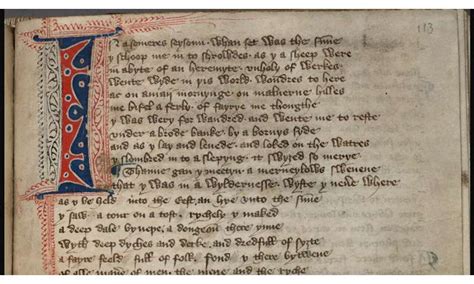 113
In a someres seysoun whan set was the sunne
y schoop me in to schrowdes as y a scheep were
in abyte of an heremyte unholy of werkes
Wente wyde in yis World Wondres to here
ac on amay mornynge on maluerne hilles
me bifel a ferly of fayrye me thougthe
y Was Wery for Wandred and Wente me to reste
Under a brode banke by a bornys syde
and as y lay and lenede and loked on the Watres
y slombred in to a slepyng it swyed so merye
Thanne gan y meetyn a merueylous sweuene
that y Was in a Wyldernesse Wyste y neuere Where
as y be held into the Eest an hye unto the sunne
y saw a tour on a toft rychely y maked
a deep dale bynethe a dongeon there ynne
With deep dyches and derke and dredful of syte
a fayre feeld full of folk fond y there bytwene
of alle maner of men the mene and the ryche